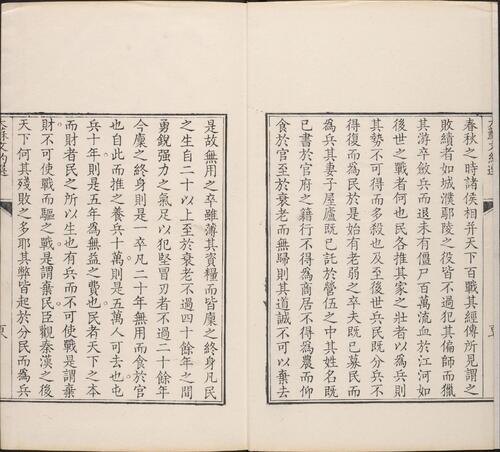 春秋之時諸侯相并天下百戰其經傳所見謂之
敗績者如城濮鄢陵之役皆不過犯其偏師而獵
其游卒斂兵而退未有僵尸百萬流血于江河如
後世之戰者何也民各推其家之壯者以爲兵則
其勢不可得而多殺也及至後世兵民既分兵不
得復而爲民於是始有老弱之卒夫既已募民而
爲兵其妻子屋廬既已託於營伍之中其姓名既
已書於官府之籍行不得爲商居不得爲農而仰
食於官至於衰老而無歸則其道誠不可以棄去
是故無用之卒雖薄其資糧而皆廩之終身凡民
之生自二十以上至於衰老不過四十餘年之間
勇銳强力之氣足以犯堅冒刃者不過二十餘年
今廩之終身則是一卒凡二十年無用而食於官
也自此而推之養兵十萬則是五萬人可去也屯
兵十年則是五年爲無益之費也民者天下之本
而財者民之所以生也有兵而不可使戰是謂棄
財不可使戰而驅之戰是謂棄民臣觀秦漢之後
天下何其殘敗之多耶其弊皆起於分民而爲兵